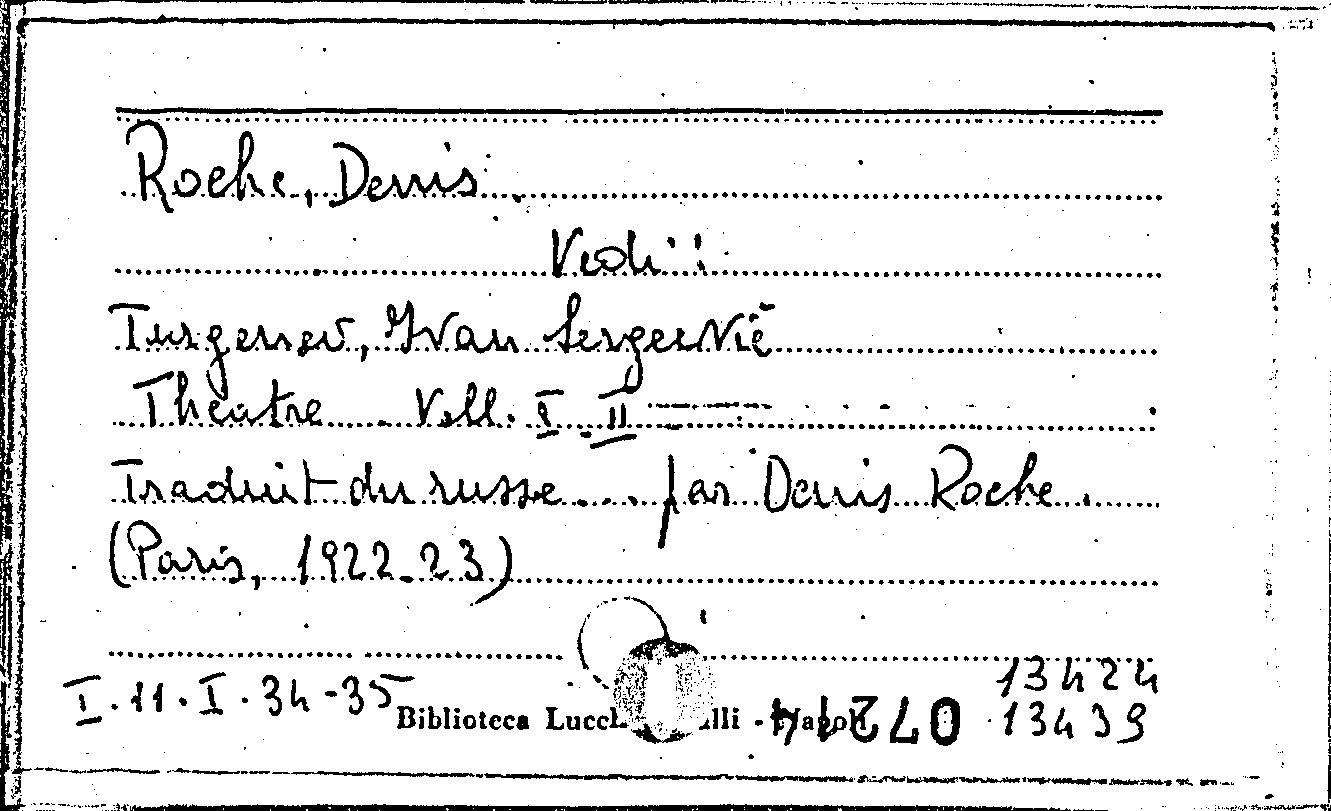 Roche, Denis
Vedi:
Turgenev, Ivan Sergeevič
Théatre Voll. I-II
Traduit du russe ... par Denis Roche.
(Paris, 1922-23)
I.11.I.34-35
13424
13439
Biblioteca - Napoli